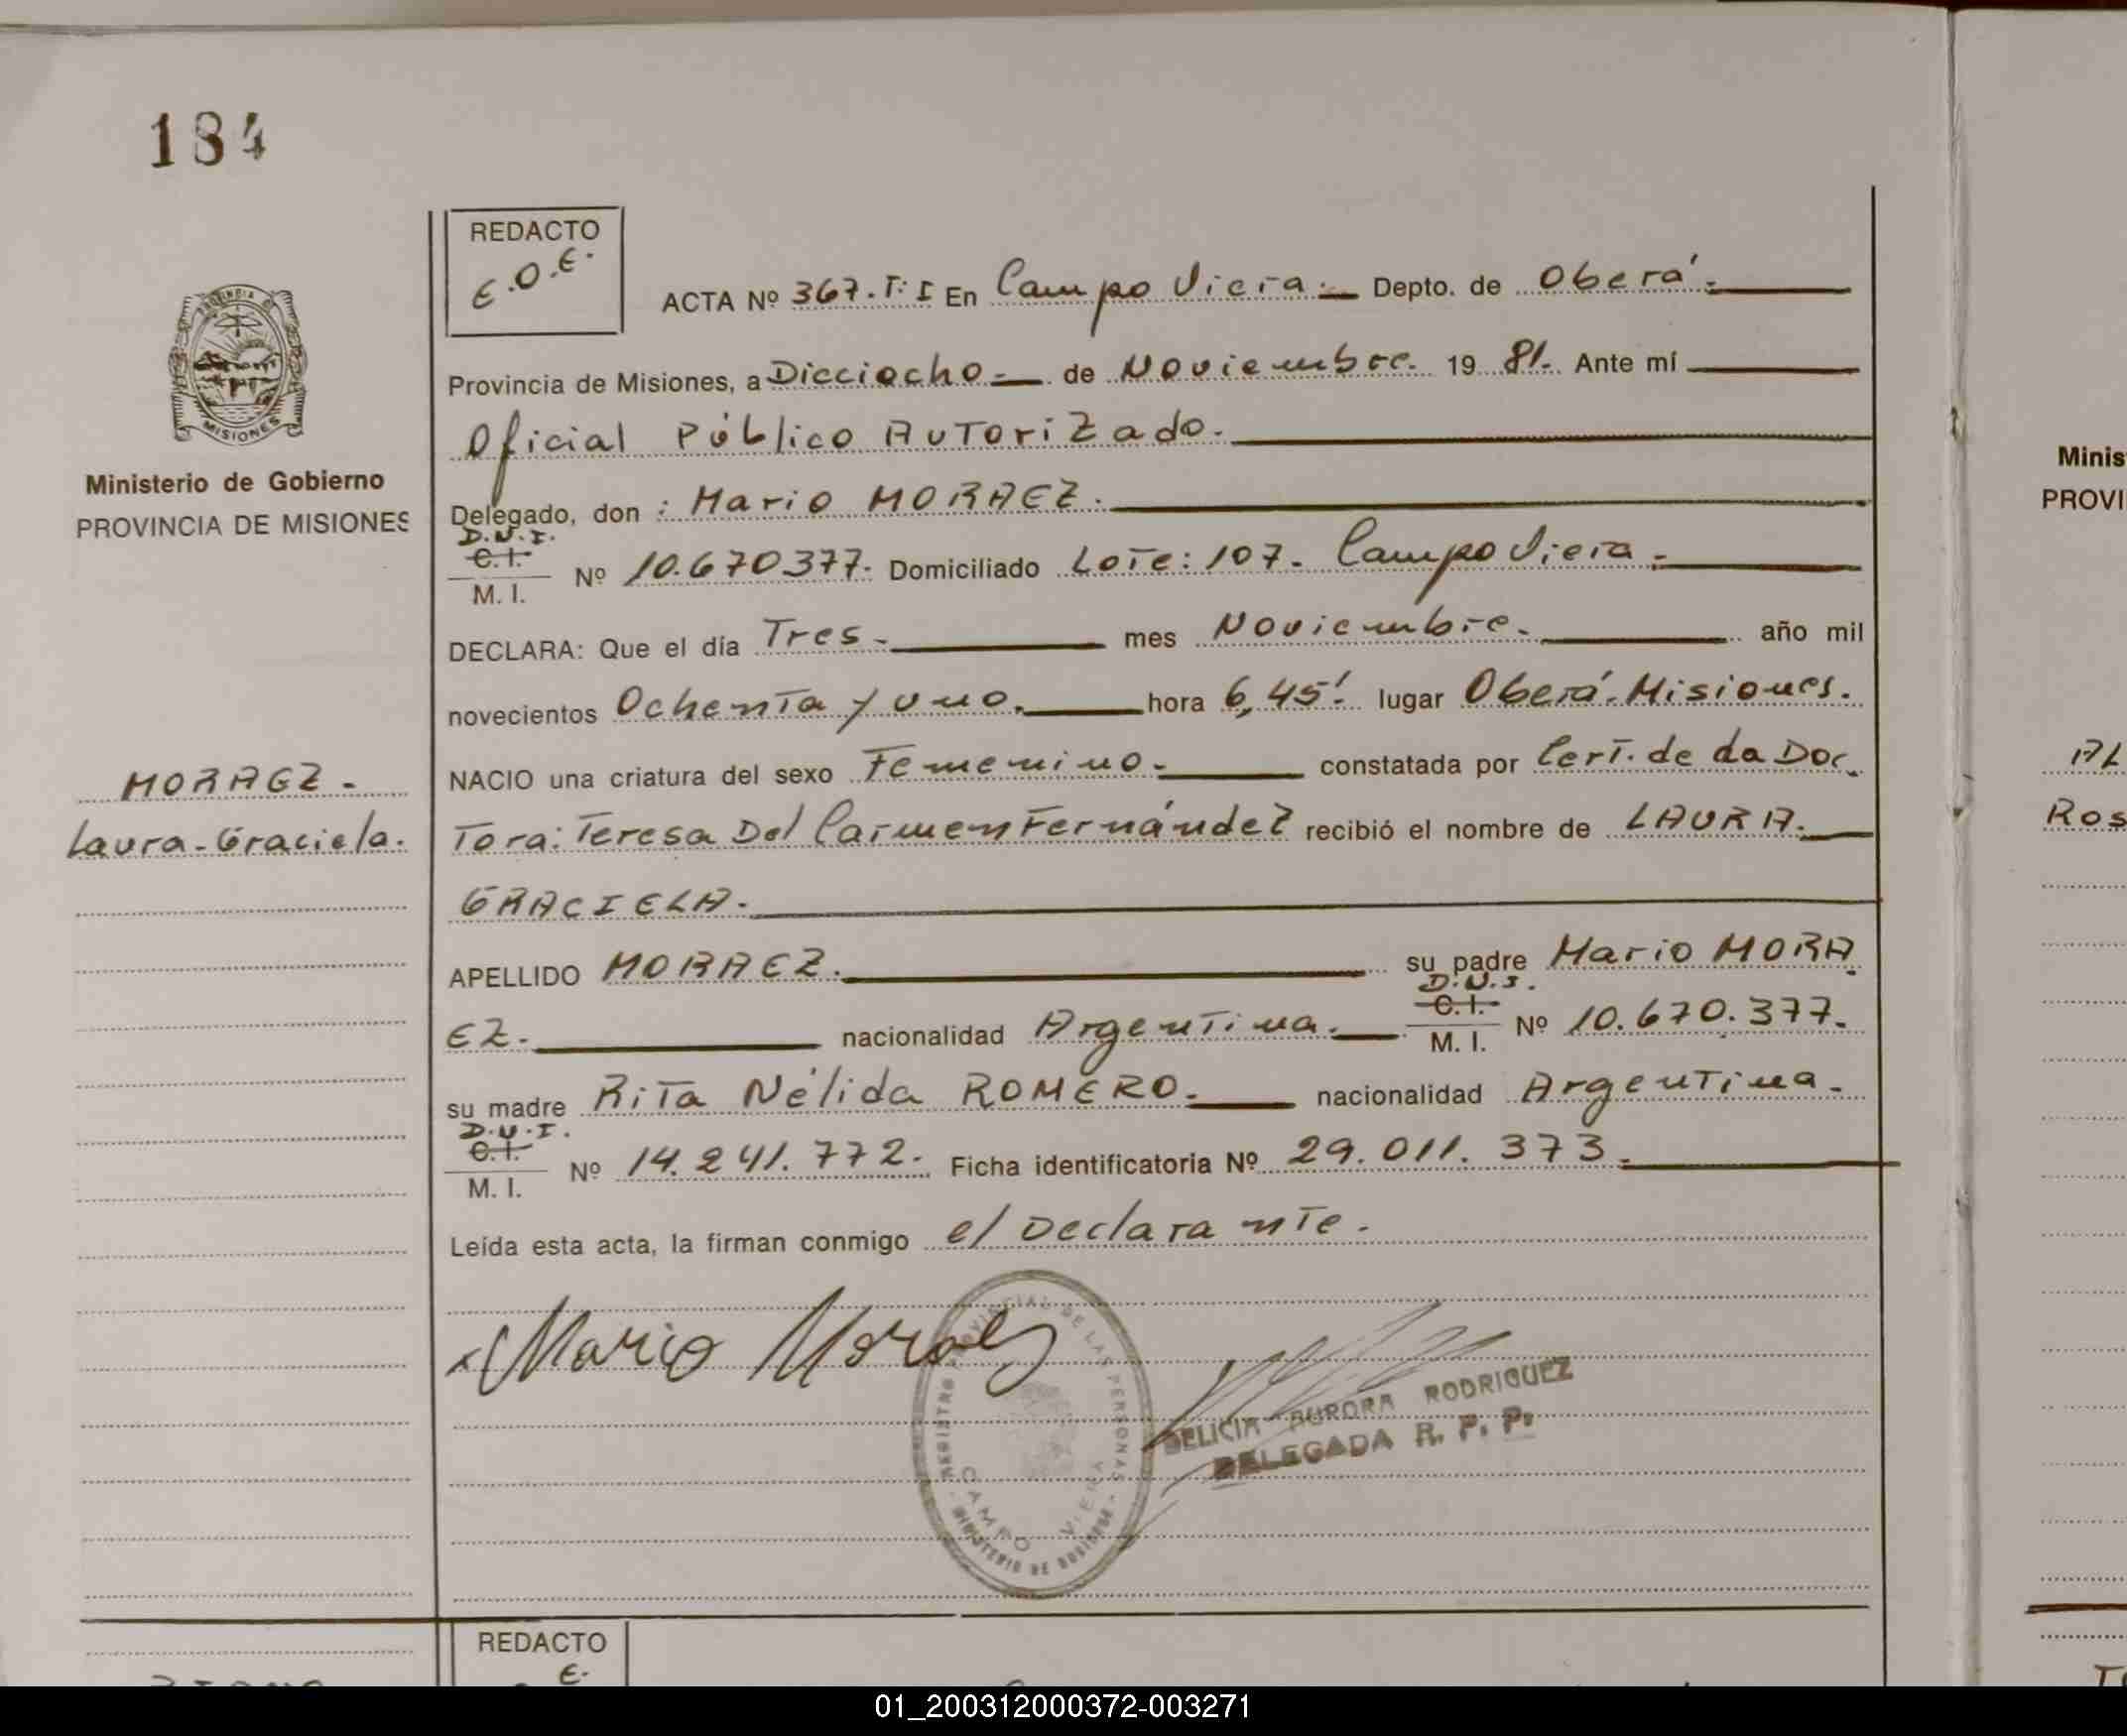 184
REDACTO
E.O.E.
ACTA Nº 367.T:I En Campo Viera.- Depto. de Oberá.-
PROVINCIA DE
MISIONES
Provincia de Misiones, a Dieciocho.- de Noviembre. 19 81. Ante mí
Oficial Público AuTorizado.
Ministerio de Gobierno
PROVINCIA DE MISIONES
Delegado, don : Mario MORAEZ.
D.N.I.
C.I.
M. I. Nº 10.670377. Domiciliado LoTe: 107. Campo Viera.-
DECLARA: Que el día Tres.- mes Noviembre. año mil
novecientos OchenTa y uno. hora 6,45'. lugar Oberá. Misiones.
MORAEZ.
NACIO una criatura del sexo Femenino.- constatada por CerT. de La Doc
Laura-Graciela.
Tora: Teresa Del Carmen Fernández recibió el nombre de LAURA.
GRACIELA.
APELLIDO MORAEZ. su padre Mario MORA
EZ. nacionalidad ArgenTina.
D.N.I.
C.I.
M. I. Nº 10.670.377.
su madre RiTa Nélida ROMERO. nacionalidad ArgenTina.
D.N.I.
C.I.
M. I. Nº 14.241.772. Ficha identificatoria Nº 29.011.373.
Leída esta acta, la firman conmigo el DeclaranTe.
x Mario Moraez
REGISTRO PROVINCIAL DE LAS PERSONAS
CAMPO VIERA
MINISTERIO DE GOBIERNO
DELICIA AURORA RODRIGUEZ
DELEGADA R. P. P.
REDACTO
E.
Minis
PROVI
AL
Ros
01_200312000372-003271